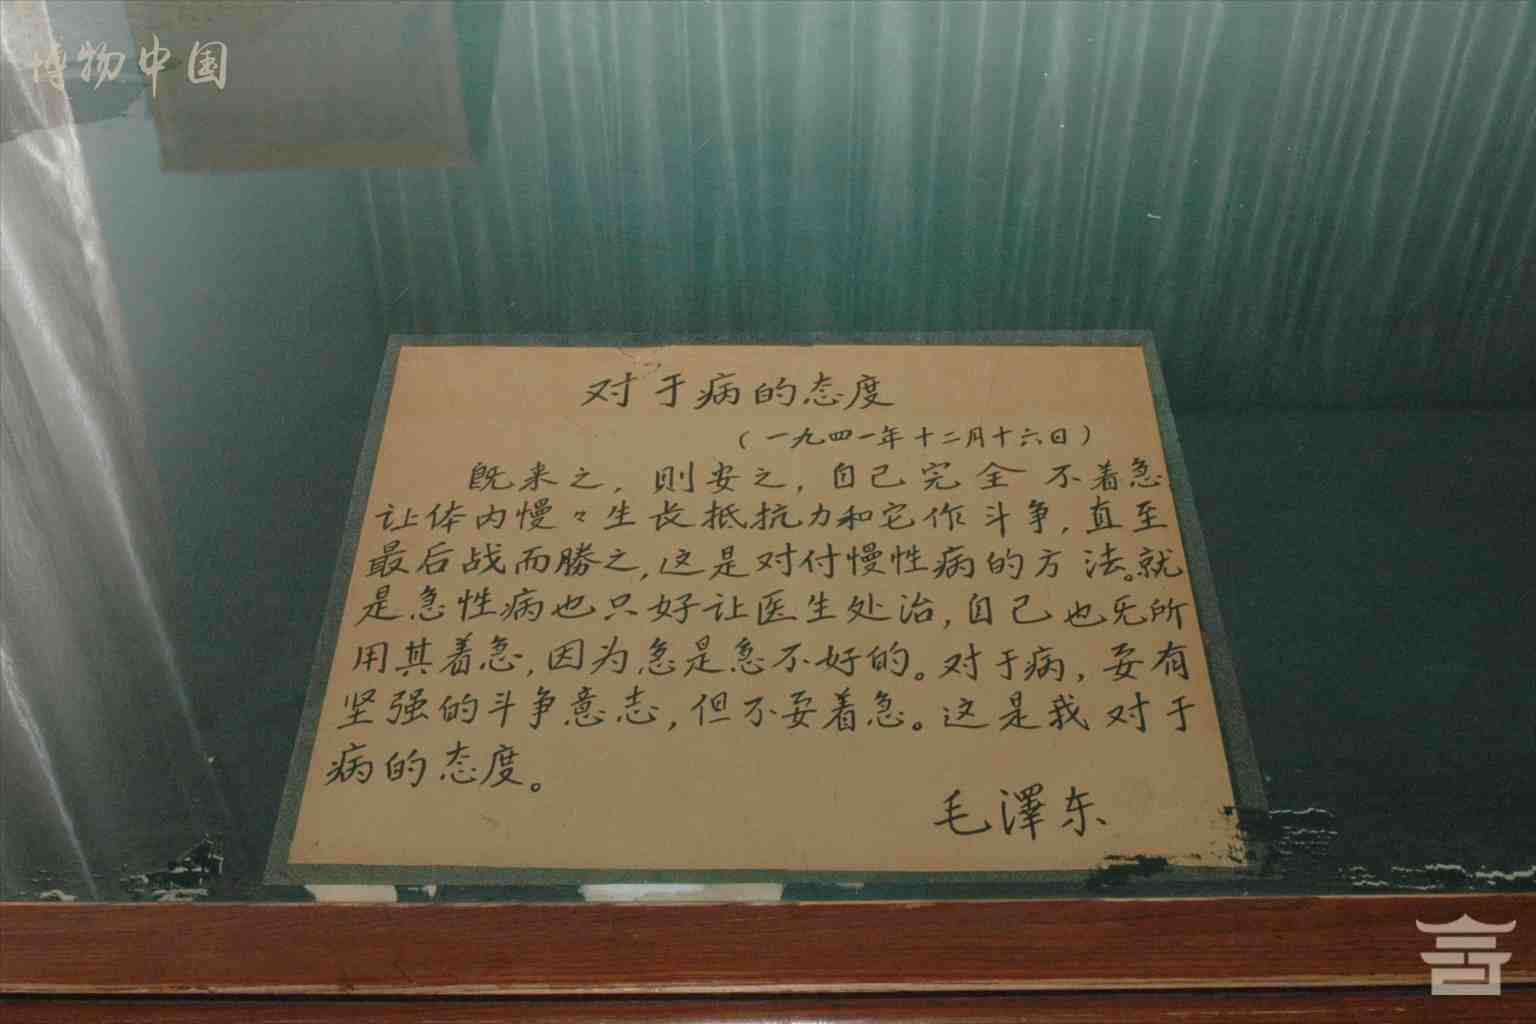 博物中国
对于病的态度
（一九四一年十二月十六日）
既来之，则安之，自己完全不着急，
让体内慢々生长抵抗力和它作斗争，直至
最后战而勝之，这是对付慢性病的方法。就
是急性病也只好让医生处治，自己也无所
用其着急，因为急是急不好的。对于病，要有
坚强的斗争意志，但不要着急。这是我对于
病的态度。
毛澤东